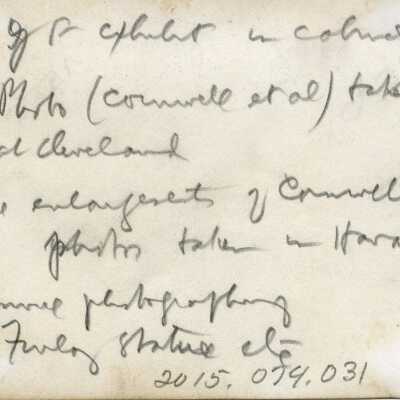 exhibit in
Photo (Cornwell et al) take
at Cleveland
enlargements of Cornwell
photos taken in Hava
photographing
Finlay statue etc
2015.074.031